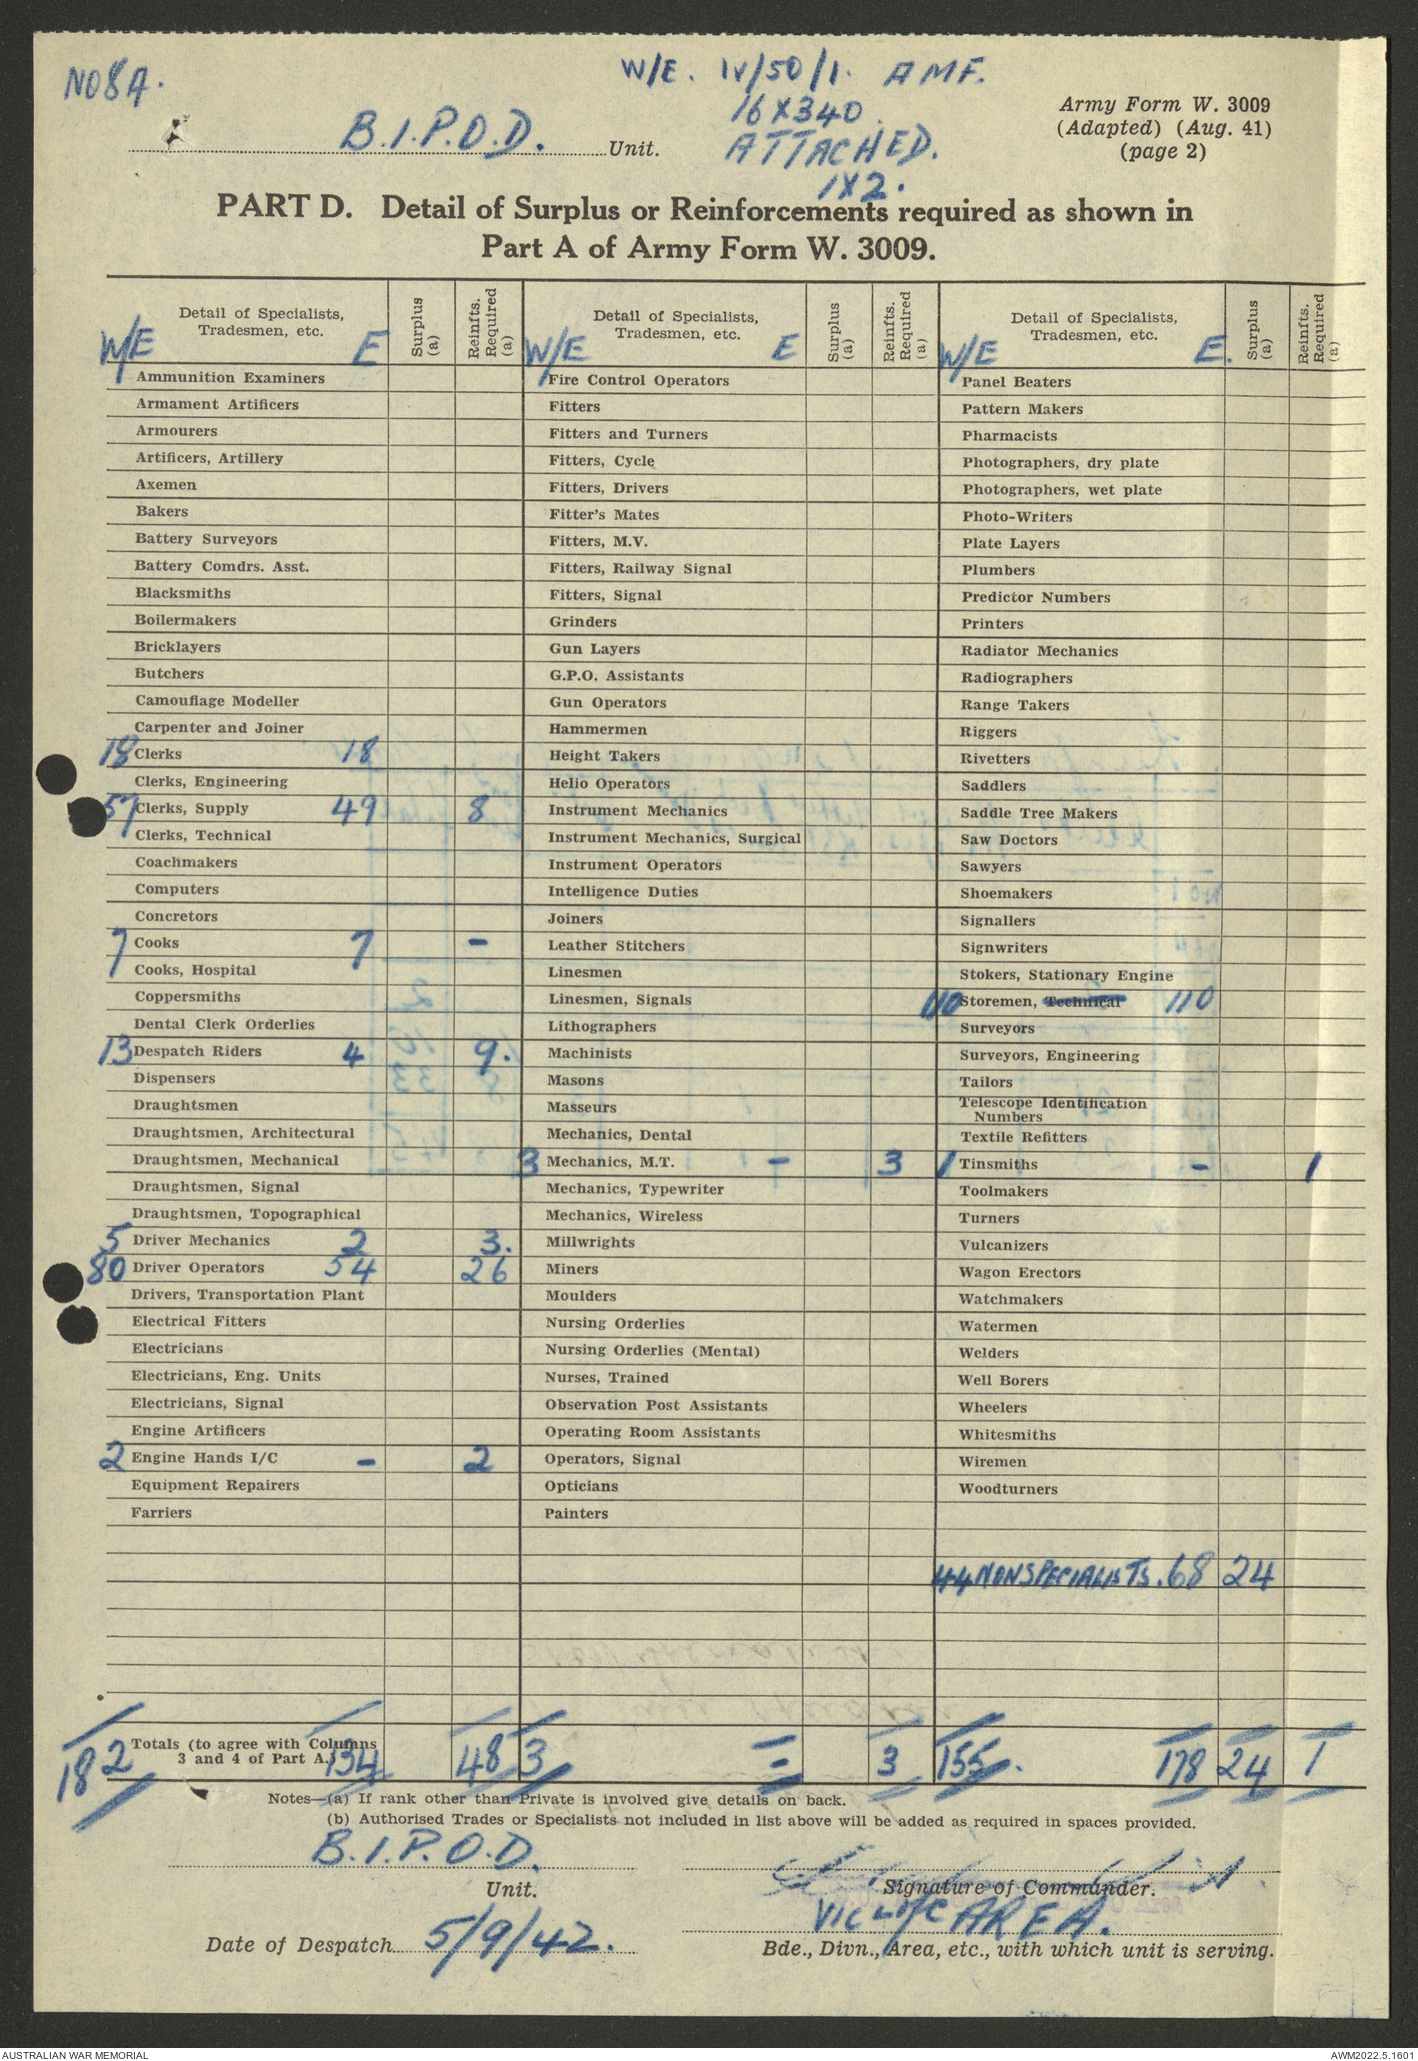 NO 8A.
W/E. IV/50/1. AMF.
16 X 340.
ATTACHED.
1 X 2.
Army Form W. 3009
(Adapted) (Aug. 41)
(page 2)
B.I.P.O.D. Unit.
PART D. Detail of Surplus or Reinforcements required as shown in
Part A of Army Form W. 3009.
Detail of Specialists, Tradesmen, etc. W/E E
Surplus (a)
Reinfts. Required (a)
Ammunition Examiners
Armament Artificers
Armourers
Artificers, Artillery
Axemen
Bakers
Battery Surveyors
Battery Comdrs. Asst.
Blacksmiths
Boilermakers
Bricklayers
Butchers
Camouflage Modeller
Carpenter and Joiner
18 Clerks 18
Clerks, Engineering
57 Clerks, Supply 49 8
Clerks, Technical
Coachmakers
Computers
Concretors
7 Cooks 7 -
Cooks, Hospital
Coppersmiths
Dental Clerk Orderlies
13 Despatch Riders 4 9.
Dispensers
Draughtsmen
Draughtsmen, Architectural
Draughtsmen, Mechanical
Draughtsmen, Signal
Draughtsmen, Topographical
5 Driver Mechanics 2 3.
80 Driver Operators 54 26
Drivers, Transportation Plant
Electrical Fitters
Electricians
Electricians, Eng. Units
Electricians, Signal
Engine Artificers
2 Engine Hands I/C - 2
Equipment Repairers
Farriers
Detail of Specialists, Tradesmen, etc. W/E E
Surplus (a)
Reinfts. Required (a)
Fire Control Operators
Fitters
Fitters and Turners
Fitters, Cycle
Fitters, Drivers
Fitter's Mates
Fitters, M.V.
Fitters, Railway Signal
Fitters, Signal
Grinders
Gun Layers
G.P.O. Assistants
Gun Operators
Hammermen
Height Takers
Helio Operators
Instrument Mechanics
Instrument Mechanics, Surgical
Instrument Operators
Intelligence Duties
Joiners
Leather Stitchers
Linesmen
Linesmen, Signals
Lithographers
Machinists
Masons
Masseurs
Mechanics, Dental
3 Mechanics, M.T. - 3
Mechanics, Typewriter
Mechanics, Wireless
Millwrights
Miners
Moulders
Nursing Orderlies
Nursing Orderlies (Mental)
Nurses, Trained
Observation Post Assistants
Operating Room Assistants
Operators, Signal
Opticians
Painters
Detail of Specialists, Tradesmen, etc. W/E E.
Surplus (a)
Reinfts. Required (a)
Panel Beaters
Pattern Makers
Pharmacists
Photographers, dry plate
Photographers, wet plate
Photo-Writers
Plate Layers
Plumbers
Predictor Numbers
Printers
Radiator Mechanics
Radiographers
Range Takers
Riggers
Rivetters
Saddlers
Saddle Tree Makers
Saw Doctors
Sawyers
Shoemakers
Signallers
Signwriters
Stokers, Stationary Engine
110 Storemen, Technical 110
Surveyors
Surveyors, Engineering
Tailors
Telescope Identification
Numbers
Textile Refitters
1 Tinsmiths - 1
Toolmakers
Turners
Vulcanizers
Wagon Erectors
Watchmakers
Watermen
Welders
Well Borers
Wheelers
Whitesmiths
Wiremen
Woodturners
44 NONSPECIALISTS. 68 24
Totals (to agree with Columns
3 and 4 of Part A.)
182 134 48 3 - 3 155. 178 24 1
Notes—(a) If rank other than Private is involved give details on back.
(b) Authorised Trades or Specialists not included in list above will be added as required in spaces provided.
B.I.P.O.D.
Unit.
Signature of Commander.
VIC L of C AREA.
Date of Despatch 5/9/42.
Bde., Divn., Area, etc., with which unit is serving.
AUSTRALIAN WAR MEMORIAL
AWM2022.5.1601